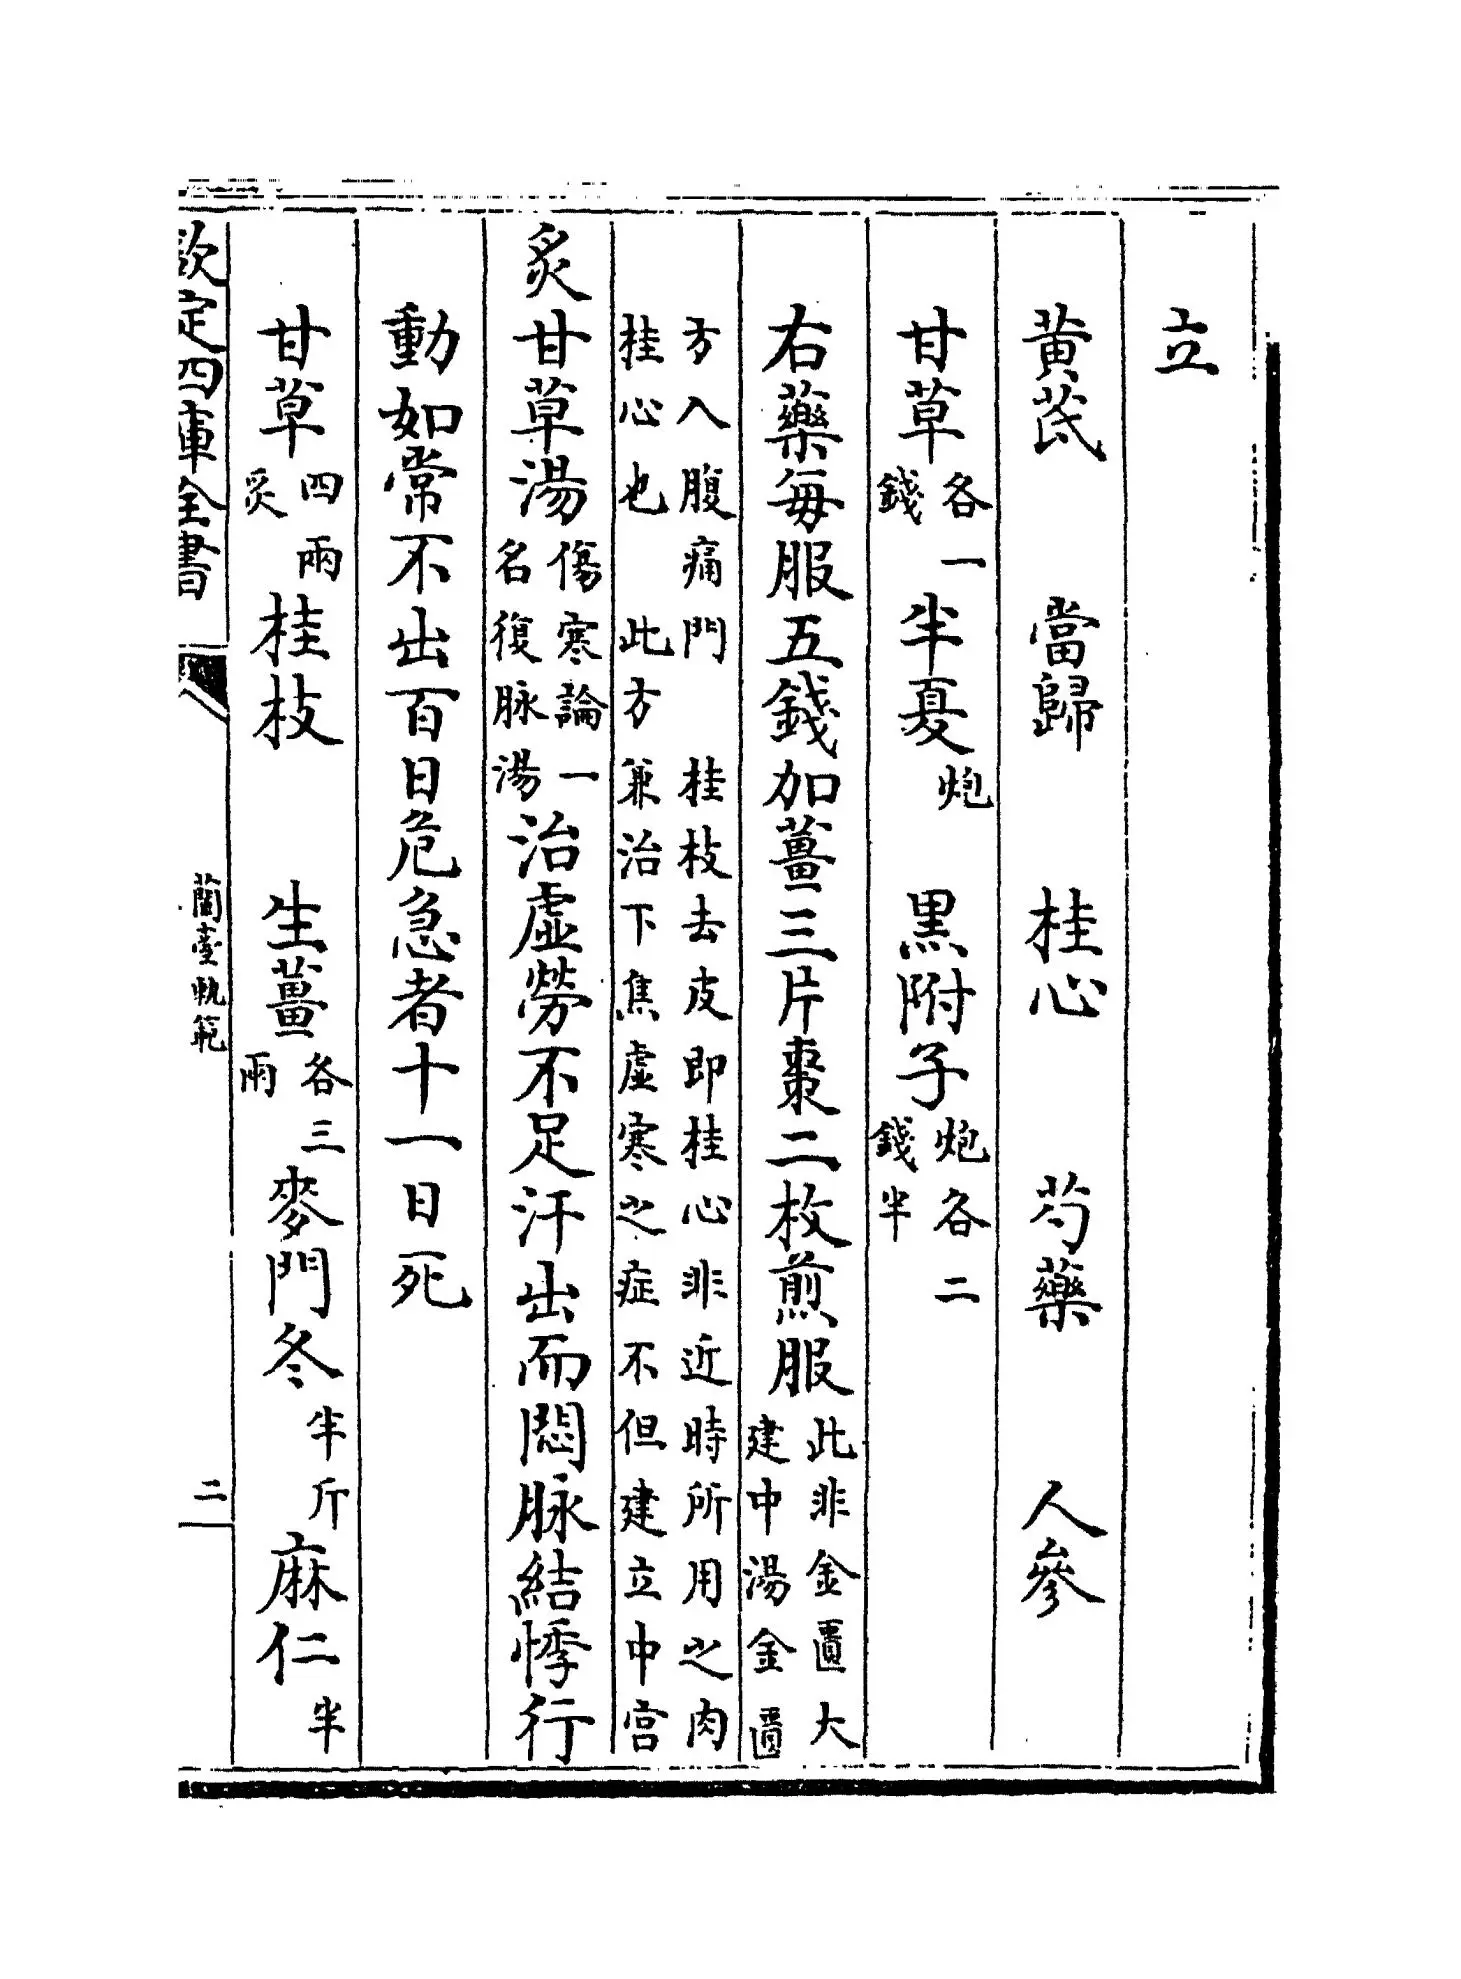 立
黄芪　當歸　桂心　芍藥　人參
甘草各一錢　半夏炮　黒附子炮各二錢半
右藥毎服五錢加薑三片棗二枚煎服此非金匱大建中湯金匱
方入腹痛門　桂枝去皮即桂心非近時所用之肉
桂心也　此方兼治下焦虛寒之症不但建立中宫
炙甘草湯傷寒論一名復脉湯治虛勞不足汗出而悶脉結悸行
動如常不出百日危急者十一日死
甘草四兩炙　桂枝　生薑各三兩　麥門冬半斤　麻仁半
欽定四庫全書　蘭臺軌範　二